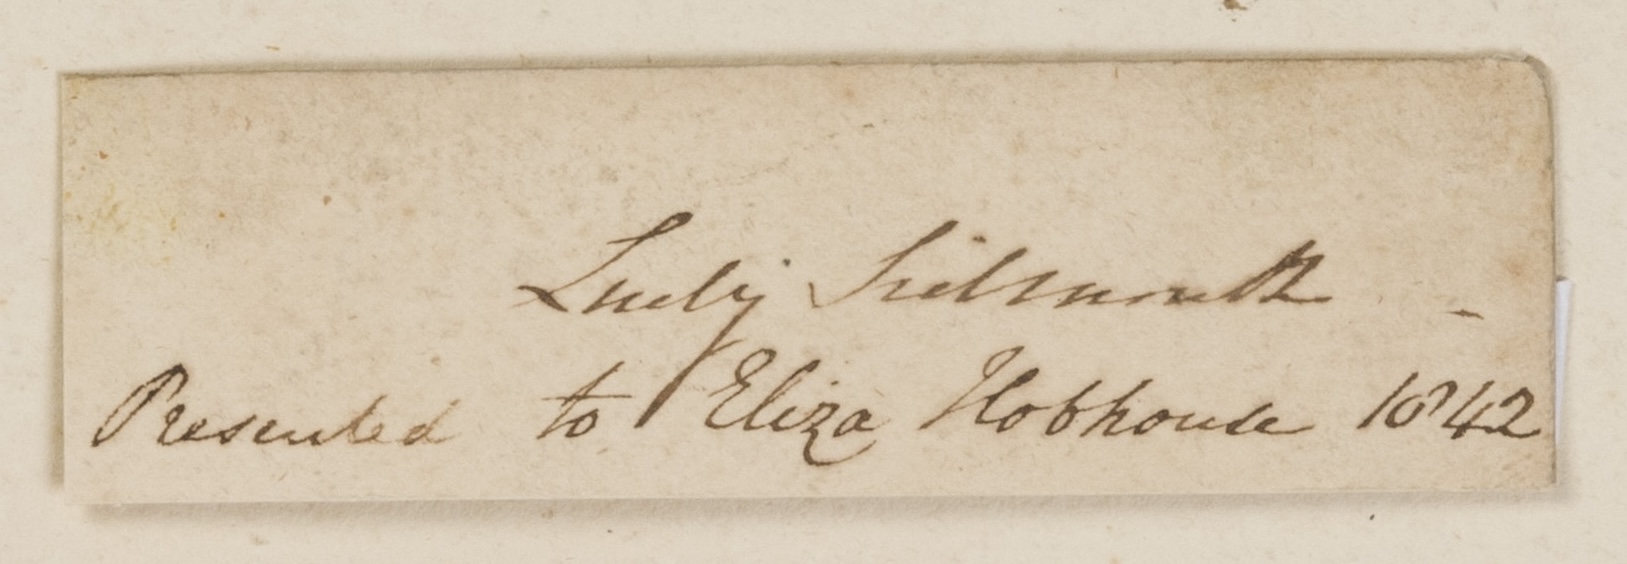 Lady Sidmouth -
Presented to Eliza Hobhouse 1842